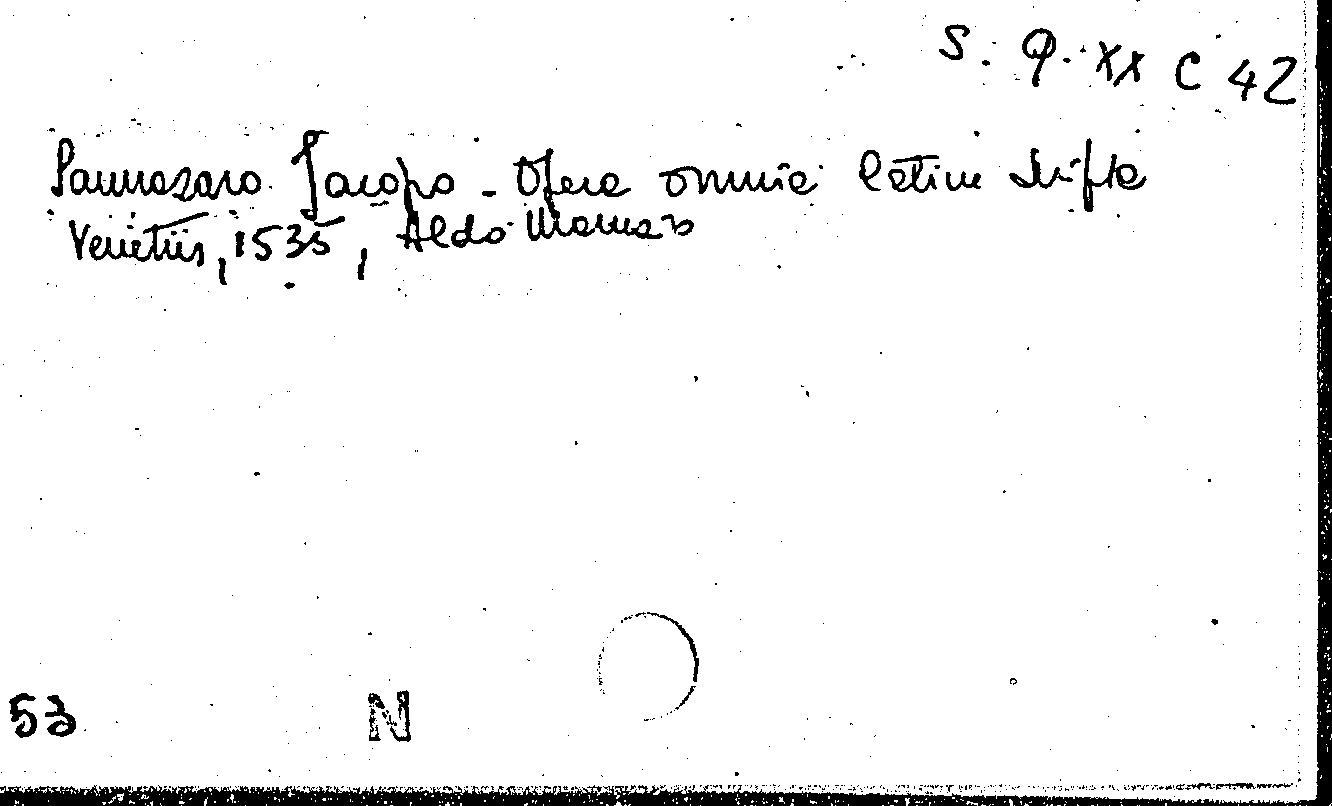 S. Q. XX C 42
Sannazaro Jacopo - Opera omnia latine scripta
Venetiis, 1535, Aldo Manuzio
53
N